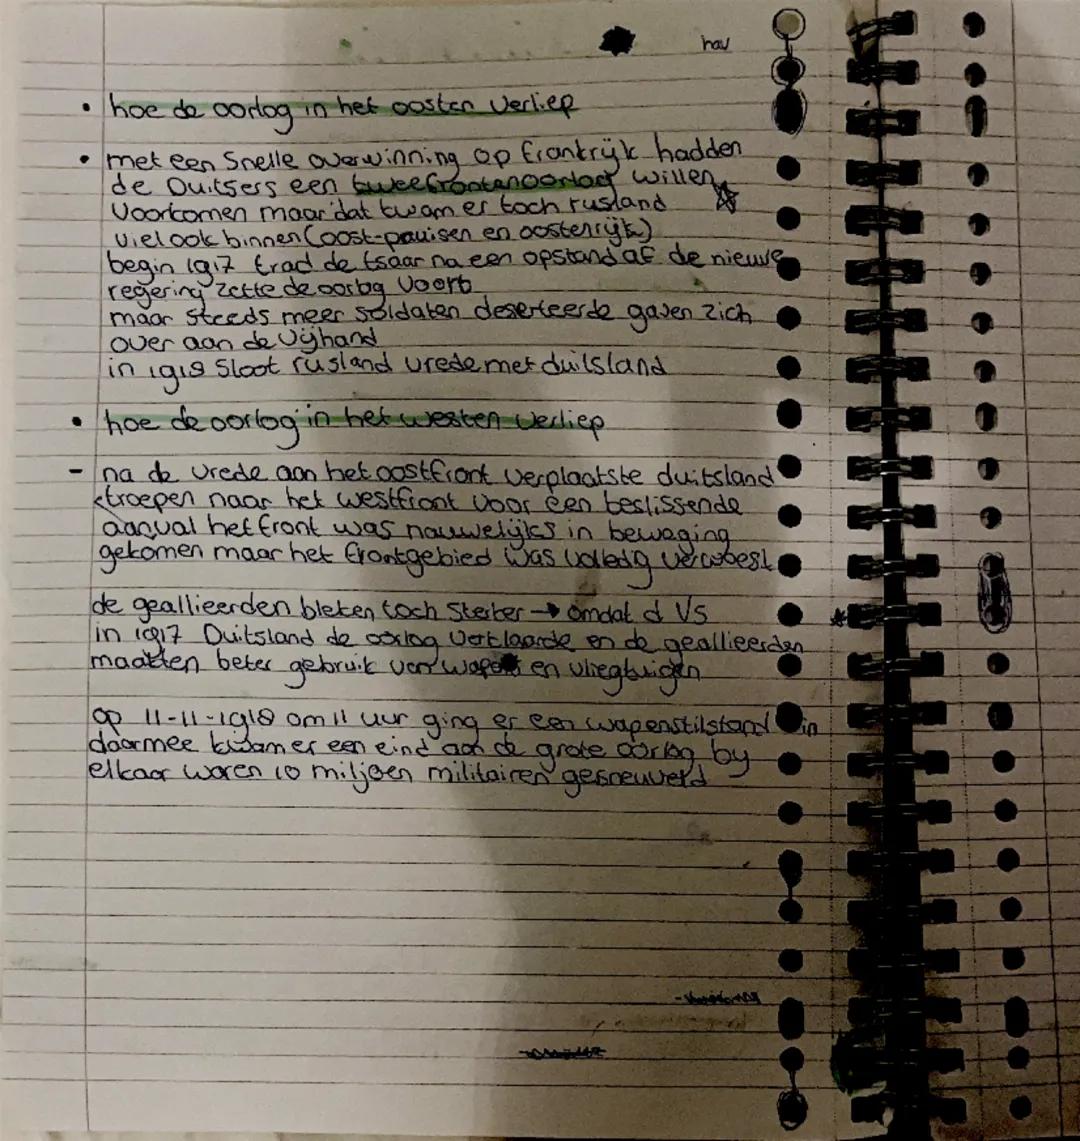 hav
• hoe de oorlog in het oosten verliep
• met een Snelle overwinning op frankrijk hadden
de Duitsers een tweefrontenoorlog willen
voorkomen maar dat kwam er toch rusland
viel ook binnen (oost-pruisen en oostenrijk)
begin 1917 trad de tsaar na een opstand af de nieuwe
regering zette de oorlog voort
maar steeds meer soldaten deserteerde gaven zich
over aan de vijhand
in 1918 sloot rusland vrede met duitsland
• hoe de oorlog in het westen verliep
- na de vrede aan het oostfront verplaatste duitsland
troepen naar het westfront voor een beslissende
aanval het front was nauwelijks in beweging
gekomen maar het frontgebied was volledig verwoest
de geallieerden bleken toch sterker → omdat d VS
in 1917 Duitsland de oorlog verklaarde en de geallieerden
maakten beter gebruik van en vliegtuigen
op 11-11-1918 om 11 uur ging er een wapenstilstand in
daarmee kwam er een eind aan de grote oorlog by
elkaar waren 10 miljoen militairen gesneuveld